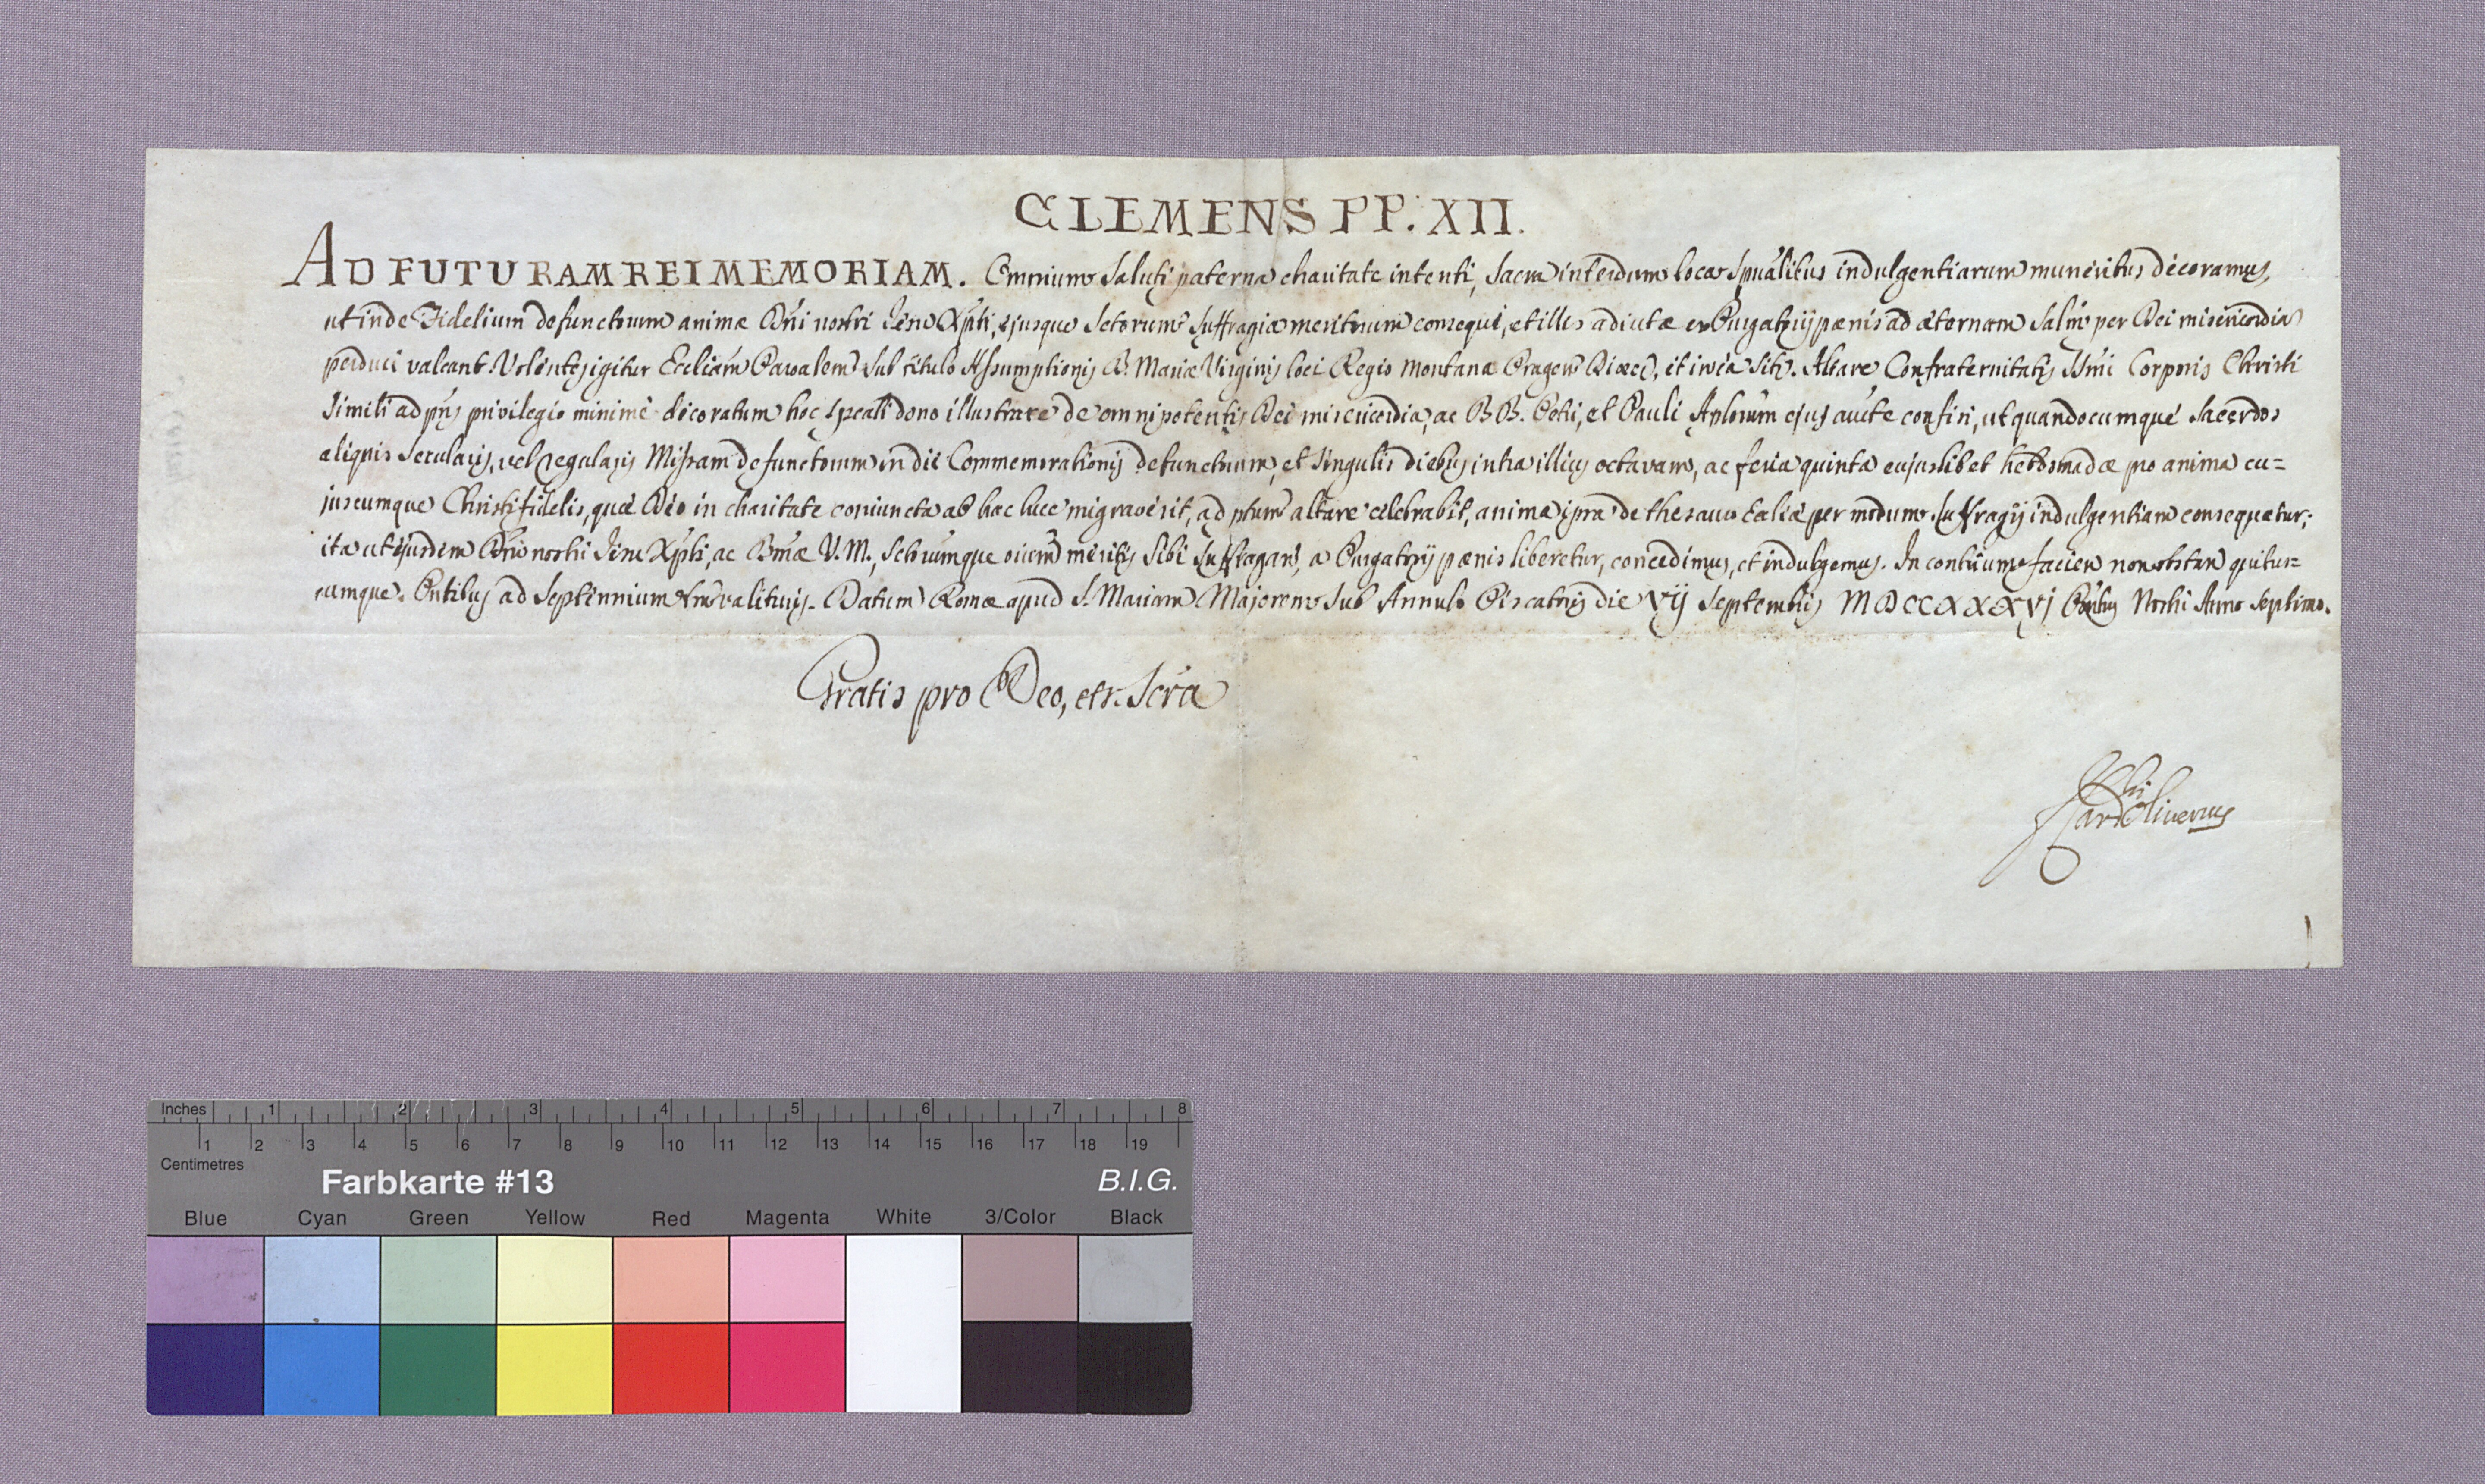 CLEMENS PP. XII.
AD FUTURAM REI MEMORIAM. Omnium saluti paterna charitate intenti, sacra interdum loca spũalibus indulgentiarum muneribus decoramus,
ut inde Fidelium defunctorum animæ Dñi nostri Jesu Xp̃ti, ejusque Sctorum suffragia meritorum consequi, et illis adiutæ ex Purgatorij pænis ad æternam salm̃ per Dei misericordia
perduci valeant. Volentes igitur Eccliam Paroalem sub titulo Assumptionis B. Mariæ Virginis loci Regio Montanæ Pragen Diœc, et in ea sit. Altare Confraternitatis SSmi Corporis Christi
simili ad pñs privilegio minimè decoratum hoc speali dono illustrare de omnipotentis Dei misericordia, ac BB. Petri, et Pauli Aplorum ejus aucte confisi, ut quandocumque Sacerdos
aliquis secularis, vel regularis Missam defunctorum in die Commemorationis defunctorum, et singulis diebus intra illius octavam, ac feria quinta cujuslibet hebdomadæ pro anima cu=
juscumque Christifidelis, quæ Deo in charitate coniuncta ab hac luce migraverit, ad ptum altare celebrabit, anima ipsa de thesauro Ecaliæ per modum suffragij indulgentiam consequatur;
ita ut ejusdem Dñi nostri Jesu Xp̃ti, ac Bmæ V. M., Sctorumque oium meritis sibi suffragan, a Purgatorij pænis liberetur, concedimus, et indulgemus. In contrium facien non obstan quibus=
cumque. Pntibus ad Septennium tm valituris. Datum Romæ apud S. Mariam Majorem sub Annulo Piscatoris die VII Septembris MDCCXXXVI Pontus Nostri Anno Septimo.
Gratis pro Deo, et Scra
F Card Oliverius